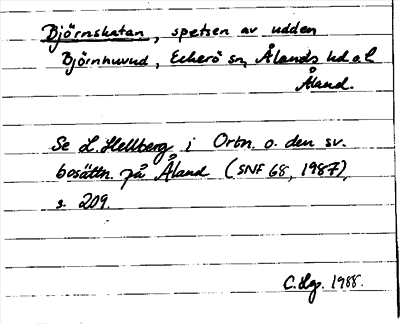 Björnskatan, spetsen av udden
Björnhuvud, Eckerö sn, Ålands hd o. l
Åland.
Se L. Hellberg i Ortn. o. den sv.
bosättn. på Åland (SNF 68, 1987),
s. 209.
C. Lgp. 1988.